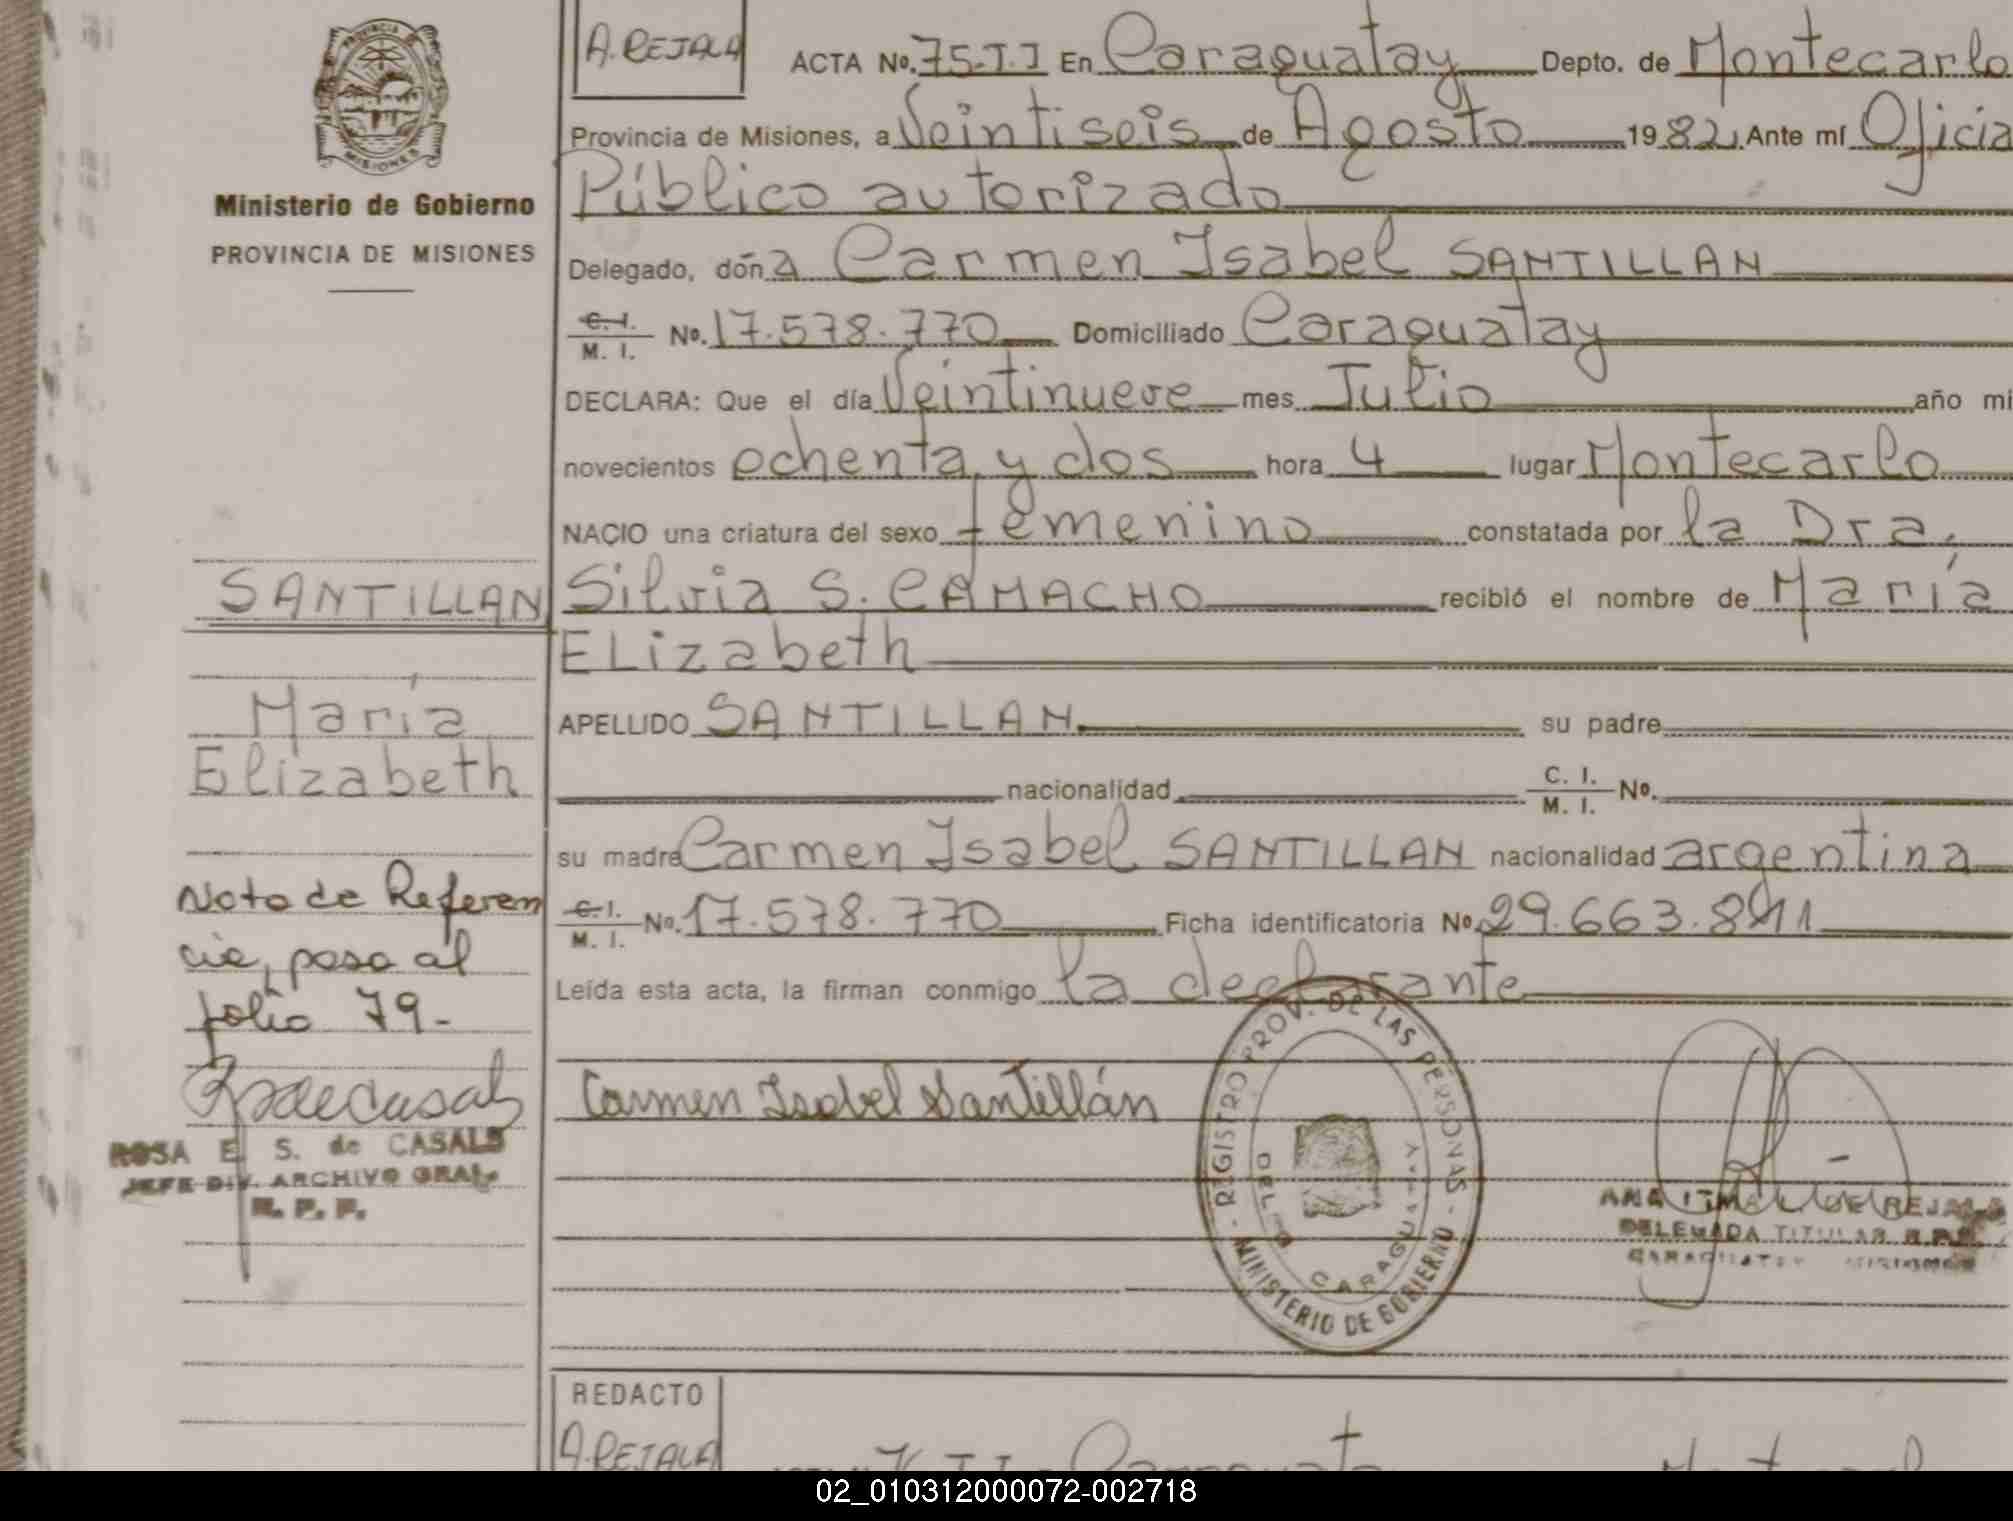 PROVINCIA
MISIONES
Ministerio de Gobierno
PROVINCIA DE MISIONES
SANTILLAN
María
Elizabeth
Nota de Referen
cia, pasa al
folio 79-
ROSA E. S. de CASALS
JEFE DIV. ARCHIVO GRAL.
R. P. P.
A. REJALA
ACTA No. 75-T.I En Caraguatay Depto. de Montecarlo
Provincia de Misiones, a Veintiseis de Agosto 1982 Ante mí Oficia
Público autorizado
Delegado, doña Carmen Isabel SANTILLAN
C. I. M. I. No. 17.578.770 Domiciliado Caraguatay
DECLARA: Que el día Veintinueve mes Julio año mi
novecientos ochenta y dos hora 4 lugar Montecarlo
NACIO una criatura del sexo femenino constatada por la Dra.
Silvia S. CAMACHO recibió el nombre de María
ELizabeth
APELLIDO SANTILLAN su padre
nacionalidad C. I. M. I. No.
su madre Carmen Isabel SANTILLAN nacionalidad argentina
C. I. M. I. No. 17.578.770 Ficha identificatoria No. 29.663.841
Leída esta acta, la firman conmigo la declarante
Carmen Isabel Santillán
REGISTRO PROV. DE LAS PERSONAS - MINISTERIO DE GOBIERNO -
CARAGUATAY
DELEGADA TITULAR R.P.P.
CARAGUATAY MISIONES
REDACTO
A. REJALA
02_010312000072-002718